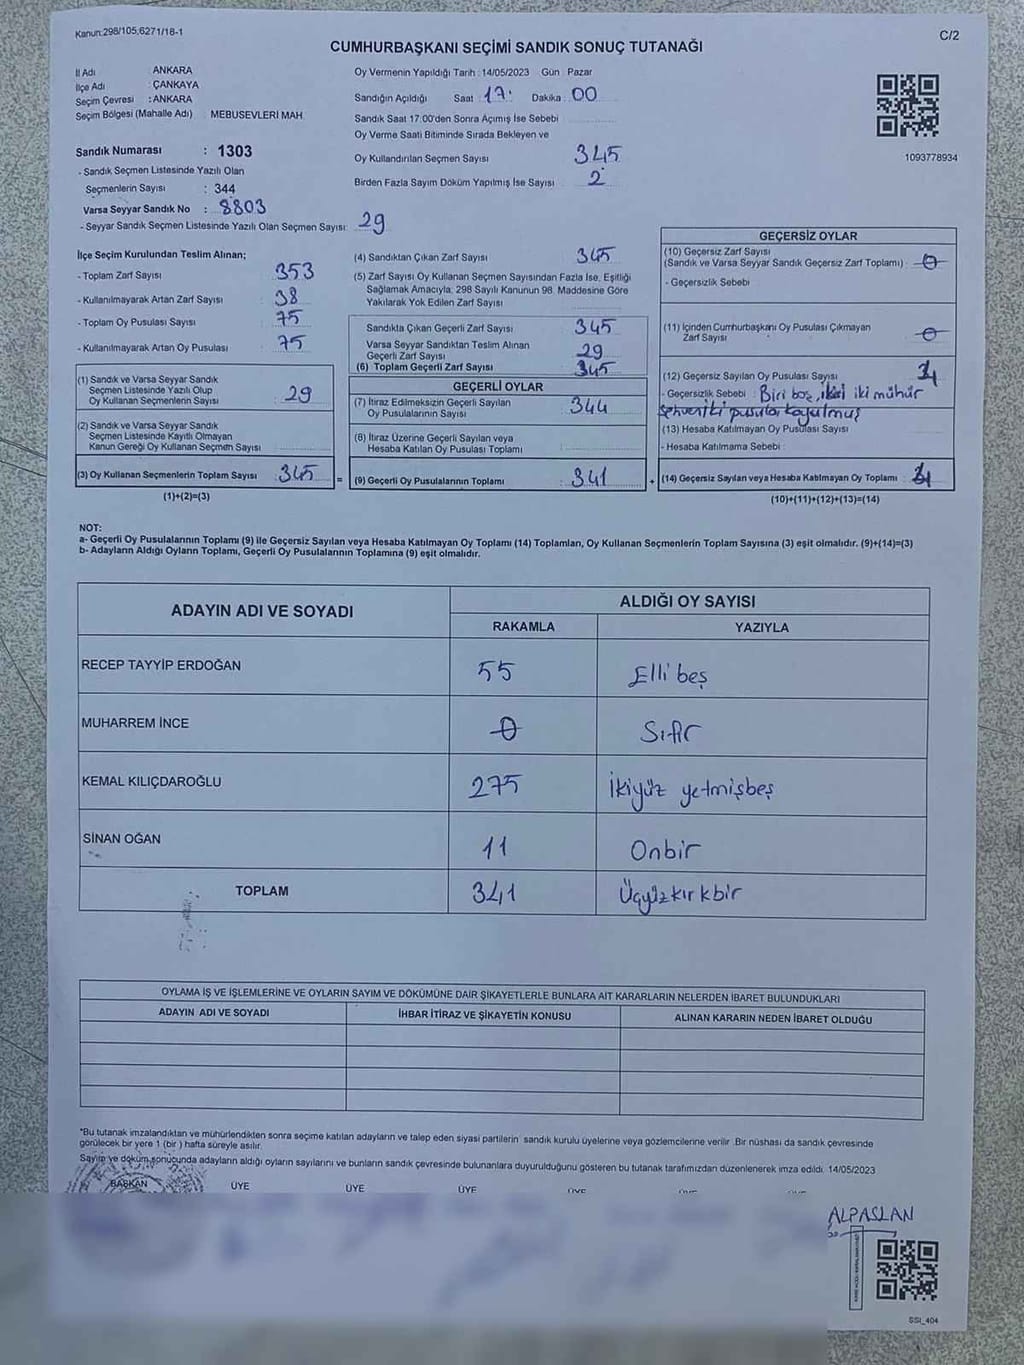 Kanun:298/105,6271/18-1
C/2
CUMHURBAŞKANI SEÇİMİ SANDIK SONUÇ TUTANAĞI
İl Adı : ANKARA
İlçe Adı : ÇANKAYA
Seçim Çevresi : ANKARA
Seçim Bölgesi (Mahalle Adı) : MEBUSEVLERİ MAH.
Sandık Numarası : 1303
- Sandık Seçmen Listesinde Yazılı Olan
Seçmenlerin Sayısı : 344
Varsa Seyyar Sandık No : 8803
- Seyyar Sandık Seçmen Listesinde Yazılı Olan Seçmen Sayısı: 29
Oy Vermenin Yapıldığı Tarih : 14/05/2023 Gün : Pazar
Sandığın Açıldığı Saat : 17: Dakika : 00
Sandık Saat 17:00'den Sonra Açımış İse Sebebi
Oy Verme Saati Bitiminde Sırada Bekleyen ve
Oy Kullandırılan Seçmen Sayısı 345
Birden Fazla Sayım Döküm Yapılmış İse Sayısı 2
1093778934
İlçe Seçim Kurulundan Teslim Alınan;
- Toplam Zarf Sayısı : 353
- Kullanılmayarak Artan Zarf Sayısı : 38
- Toplam Oy Pusulası Sayısı : 75
- Kullanılmayarak Artan Oy Pusulası : 75
(1) Sandık ve Varsa Seyyar Sandık
Seçmen Listesinde Yazılı Olup
Oy Kullanan Seçmenlerin Sayısı : 29
(2) Sandık ve Varsa Seyyar Sandık
Seçmen Listesinde Kayıtlı Olmayan
Kanun Gereği Oy Kullanan Seçmen Sayısı :
(3) Oy Kullanan Seçmenlerin Toplam Sayısı : 345
(1)+(2)=(3)
=
(4) Sandıktan Çıkan Zarf Sayısı : 345
(5) Zarf Sayısı Oy Kullanan Seçmen Sayısından Fazla İse, Eşitliği
Sağlamak Amacıyla, 298 Sayılı Kanunun 98. Maddesine Göre
Yakılarak Yok Edilen Zarf Sayısı :
Sandıkta Çıkan Geçerli Zarf Sayısı : 345
Varsa Seyyar Sandıktan Teslim Alınan
Geçerli Zarf Sayısı : 29
(6) Toplam Geçerli Zarf Sayısı : 345
GEÇERLİ OYLAR
(7) İtiraz Edilmeksizin Geçerli Sayılan
Oy Pusulalarının Sayısı : 344
(8) İtiraz Üzerine Geçerli Sayılan veya
Hesaba Katılan Oy Pusulası Toplamı :
(9) Geçerli Oy Pusulalarının Toplamı : 341
+
GEÇERSİZ OYLAR
(10) Geçersiz Zarf Sayısı
(Sandık ve Varsa Seyyar Sandık Geçersiz Zarf Toplamı) : 0
- Geçersizlik Sebebi :
(11) İçinden Cumhurbaşkanı Oy Pusulası Çıkmayan
Zarf Sayısı : 0
(12) Geçersiz Sayılan Oy Pusulası Sayısı : 4
- Geçersizlik Sebebi : Biri boş, ikisi iki mühür
sehven iki pusula koyulmuş
(13) Hesaba Katılmayan Oy Pusulası Sayısı :
- Hesaba Katılmama Sebebi :
(14) Geçersiz Sayılan veya Hesaba Katılmayan Oy Toplamı : 4
(10)+(11)+(12)+(13)=(14)
NOT:
a- Geçerli Oy Pusulalarının Toplamı (9) ile Geçersiz Sayılan veya Hesaba Katılmayan Oy Toplamı (14) Toplamları, Oy Kullanan Seçmenlerin Toplam Sayısına (3) eşit olmalıdır. (9)+(14)=(3)
b- Adayların Aldığı Oyların Toplamı, Geçerli Oy Pusulalarının Toplamına (9) eşit olmalıdır.
ADAYIN ADI VE SOYADI
ALDIĞI OY SAYISI
RAKAMLA YAZIYLA
RECEP TAYYİP ERDOĞAN 55 Elli beş
MUHARREM İNCE 0 Sıfır
KEMAL KILIÇDAROĞLU 275 İkiyüz yetmişbeş
SİNAN OĞAN 11 Onbir
TOPLAM 341 Üçyüzkırkbir
OYLAMA İŞ VE İŞLEMLERİNE VE OYLARIN SAYIM VE DÖKÜMÜNE DAİR ŞİKAYETLERLE BUNLARA AİT KARARLARIN NELERDEN İBARET BULUNDUKLARI
ADAYIN ADI VE SOYADI İHBAR İTİRAZ VE ŞİKAYETİN KONUSU ALINAN KARARIN NEDEN İBARET OLDUĞU
*Bu tutanak imzalandıktan ve mühürlendikten sonra seçime katılan adayların ve talep eden siyasi partilerin sandık kurulu üyelerine veya gözlemcilerine verilir. Bir nüshası da sandık çevresinde
görülecek bir yere 1 (bir) hafta süreyle asılır.
Sayım ve döküm sonucunda adayların aldığı oyların sayılarını ve bunların sandık çevresinde bulunanlara duyurulduğunu gösteren bu tutanak tarafımızdan düzenlenerek imza edildi. 14/05/2023
BAŞKAN ÜYE ÜYE ÜYE
ALPASLAN
SSI_404